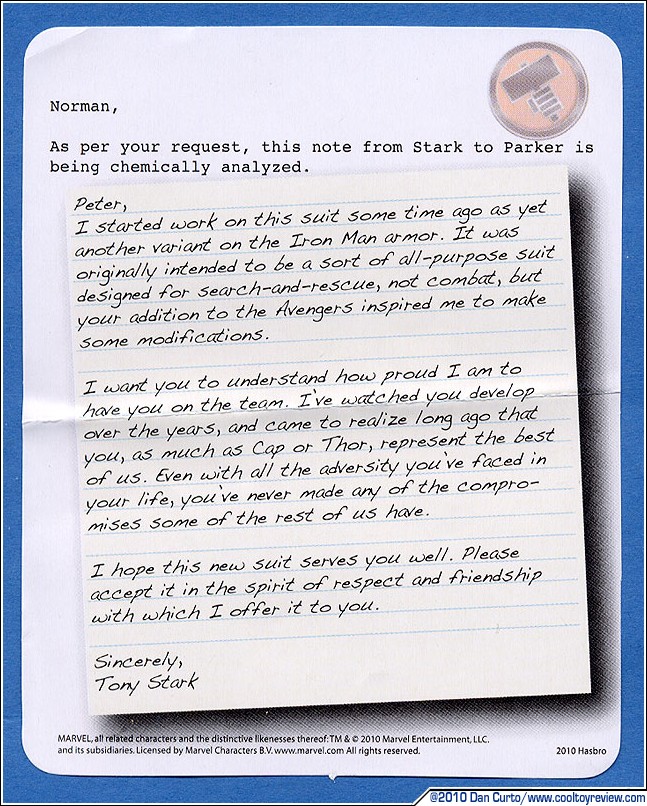 Norman,
As per your request, this note from Stark to Parker is
being chemically analyzed.
Peter,
I started work on this suit some time ago as yet
another variant on the Iron Man armor. It was
originally intended to be a sort of all-purpose suit
designed for search-and-rescue, not combat, but
your addition to the Avengers inspired me to make
some modifications.
I want you to understand how proud I am to
have you on the team. I've watched you develop
over the years, and came to realize long ago that
you, as much as Cap or Thor, represent the best
of us. Even with all the adversity you've faced in
your life, you've never made any of the compro-
mises some of the rest of us have.
I hope this new suit serves you well. Please
accept it in the spirit of respect and friendship
with which I offer it to you.
Sincerely,
Tony Stark
MARVEL, all related characters and the distinctive likenesses thereof: TM & © 2010 Marvel Entertainment, LLC.
and its subsidiaries. Licensed by Marvel Characters B.V. www.marvel.com All rights reserved.
2010 Hasbro
©2010 Dan Curto/www.cooltoyreview.com